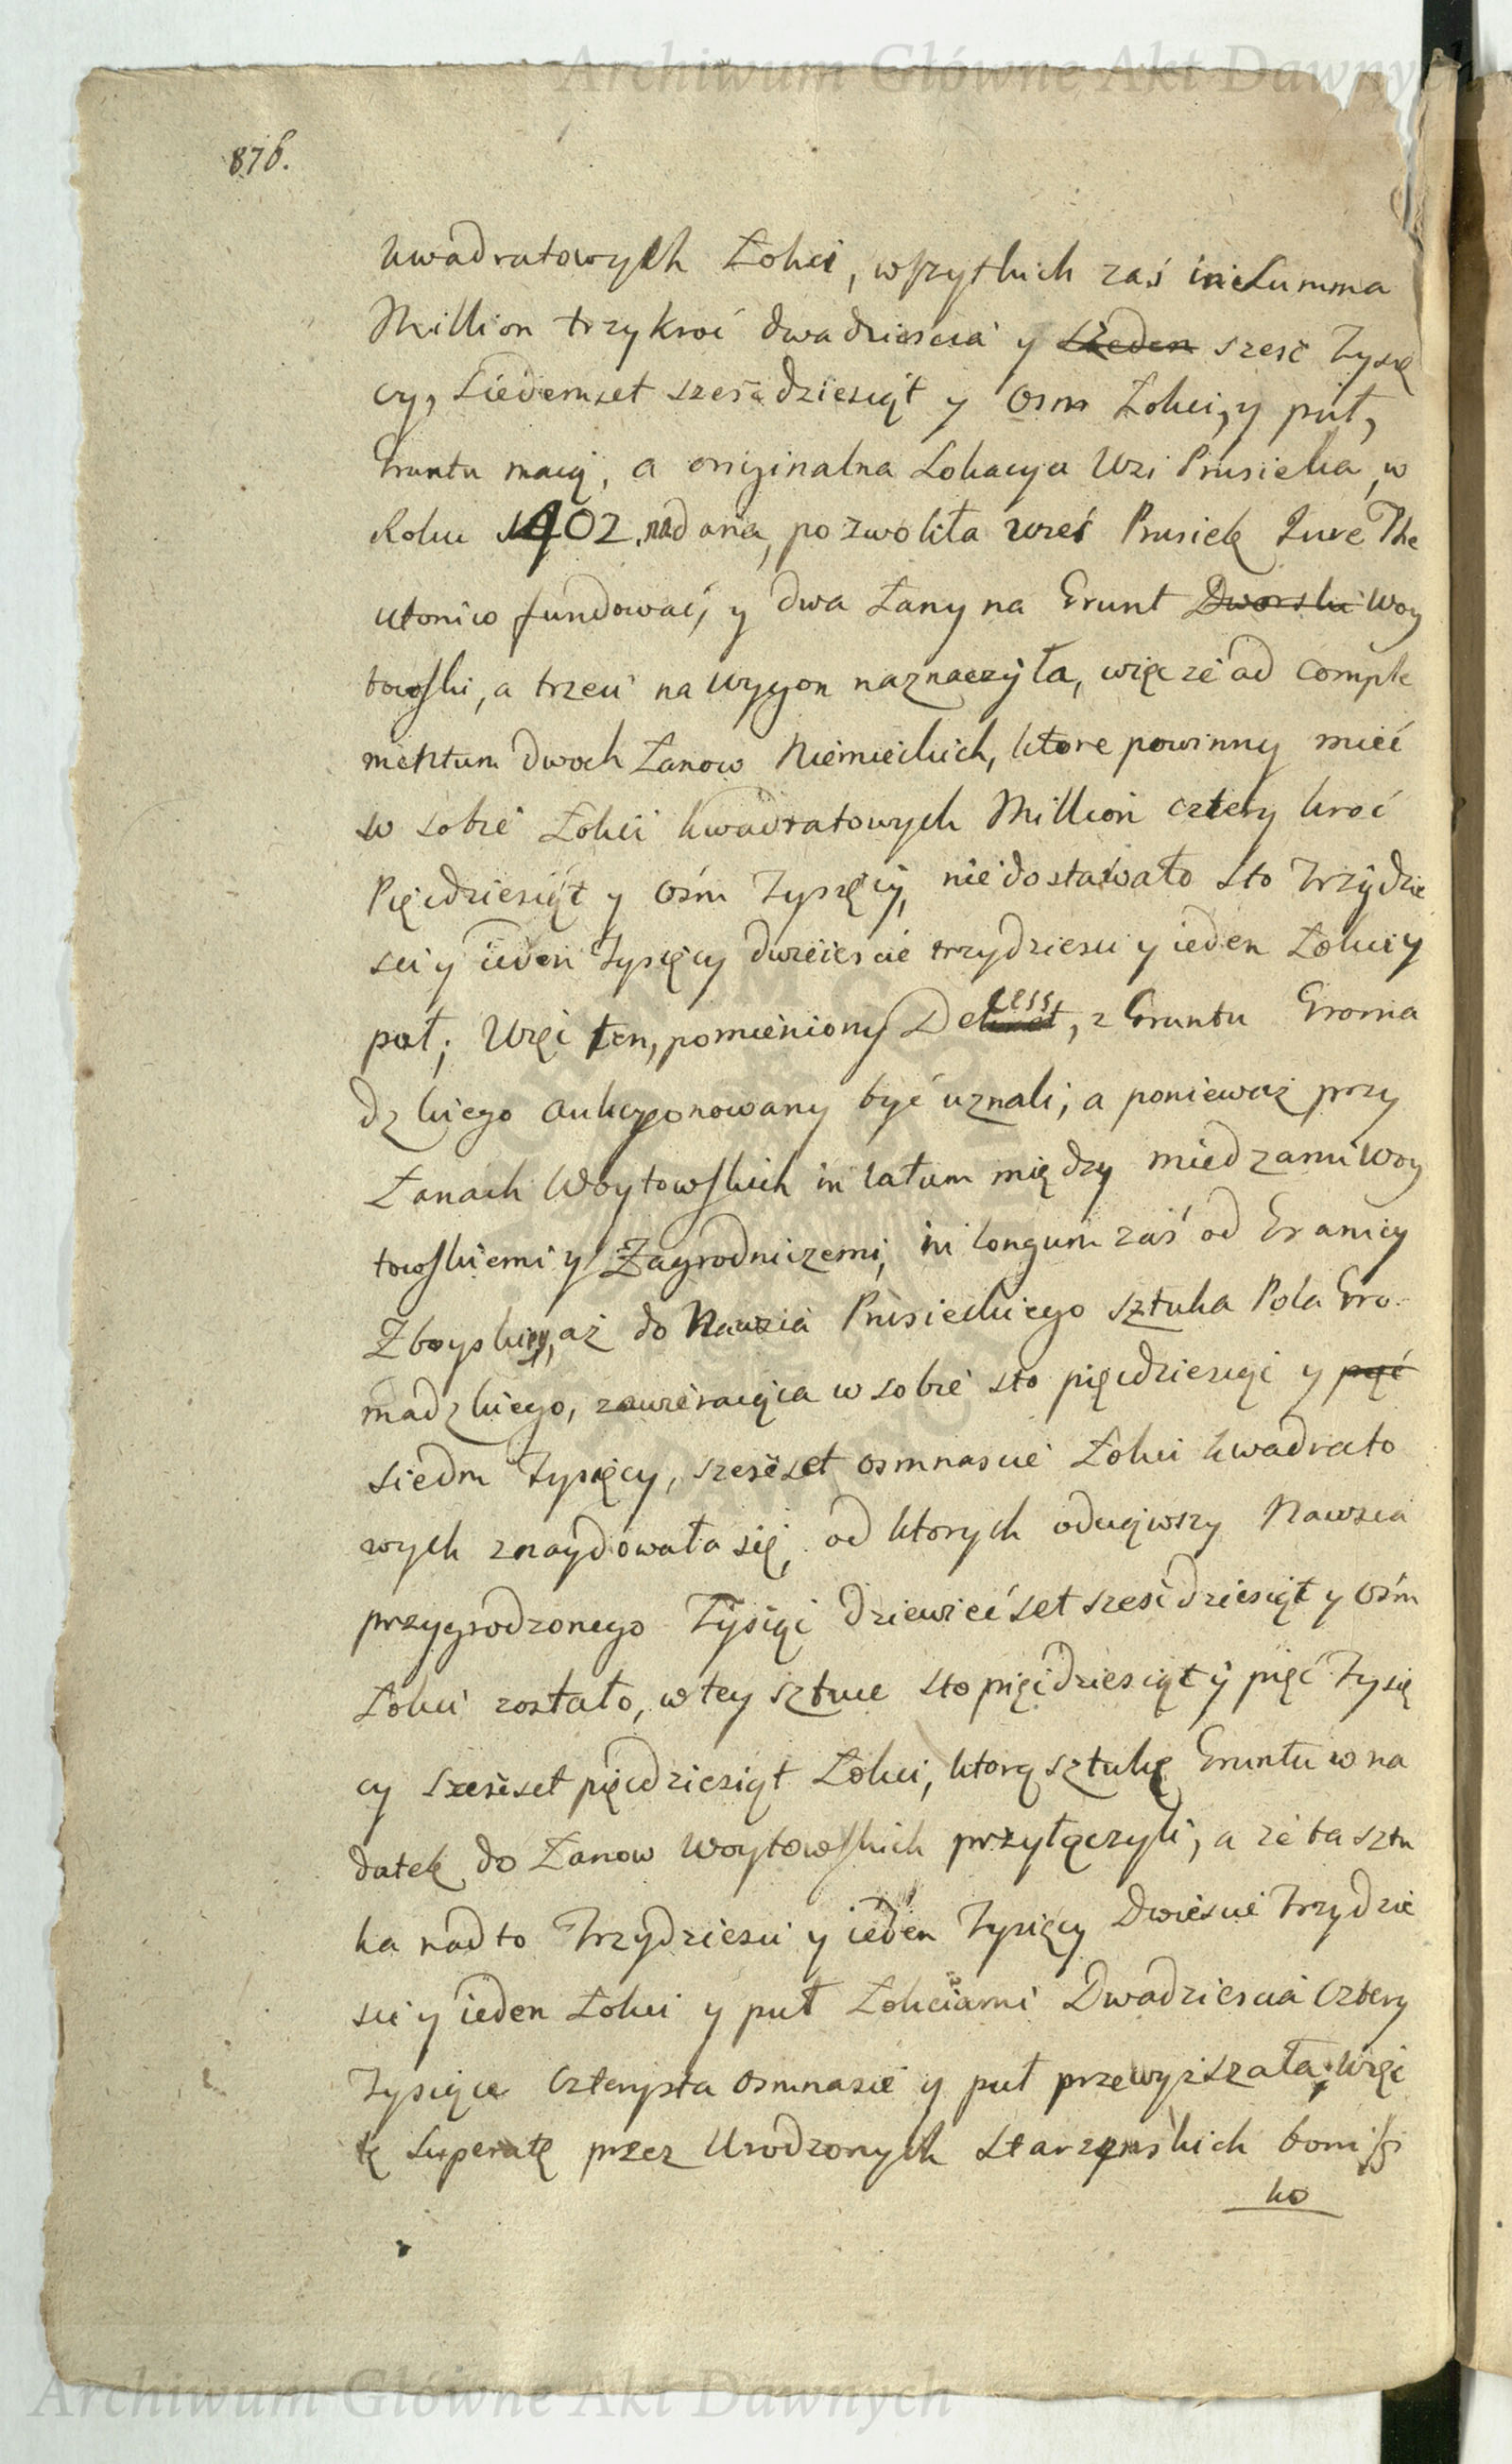 Archiwum Główne Akt Dawnych
876.
kwadratowych Łokci, wszytkich zaś in Summa
Million trzykroć dwadziescia y szesć Tysię
cy, Siedemset szesćdziesiąt y Osm Łokci, y puł,
Gruntu maią, a originalna Lokacya Wsi Prusieka, w
Roku 1402. nadana, pozwoliła wieś Prusiek Jure The
utonico fundować, y dwa Łany na Grunt Dworski Woy
towski, a trzeci na wygon naznaczyła, więc że ad comple
mentum dwoch Łanow Niemieckich, ktore powinny mieć
w sobie Łokci kwadratowych Million cztery kroć
Pięćdziesiąt y Ośm Tysięcy, niedostawało sto trzydzie
sci y ieden Tysięcy dwieiescie trzydziesci y ieden Łokci y
puł; Więc ten, pomieniony Decess, z Gruntu Groma
dzkiego aukcyonowany być uznali, a ponieważ przy
Łanach Woytowskich in latum między miedzami Woy
towskiemi y Zagrodniczemi, in longum zaś od Granicy
Zboyskiey, aż do Nawsia Prusieckiego sztuka Pola Gro
madzkiego, zawieraiąca w sobie sto pięcdziesiąt y pięć
siedm Tysięcy, szesćset osmnascie Łokci kwadrato
wych znaydowała się, od ktorych odciąwszy Nawsia
przygrodzonego Tysiąc dziewiećset szescdziesiąt y Ośm
Łokci zostało, w tey sztuce sto pięćdziesiąt y pięć Tysię
cy szesćset pięcdziesiąt Łokci, ktorą sztukę Gruntu w na
datek do Łanow Woytowskich przyłączyli, a że ta sztu
ka nad to Trzydziesci y ieden Tysięcy Dwiescie Trzydzie
sci y ieden Łokci y puł Łokciami Dwadziescia Cztery
Tysiące Czterysta osmnascie y puł przewyższała, Więc
tę Superatę przez Urodzonych Starzynskich bonifi
ko
Archiwum Główne Akt Dawnych